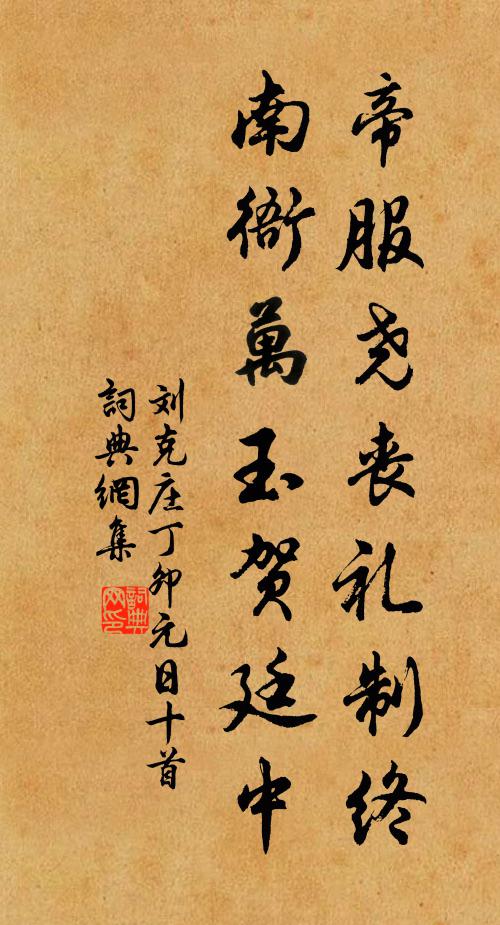 帝服尧丧礼制终
南衙萬玉贺廷中
刘克庄丁卯元日十首
詞典網集
詞典
网印